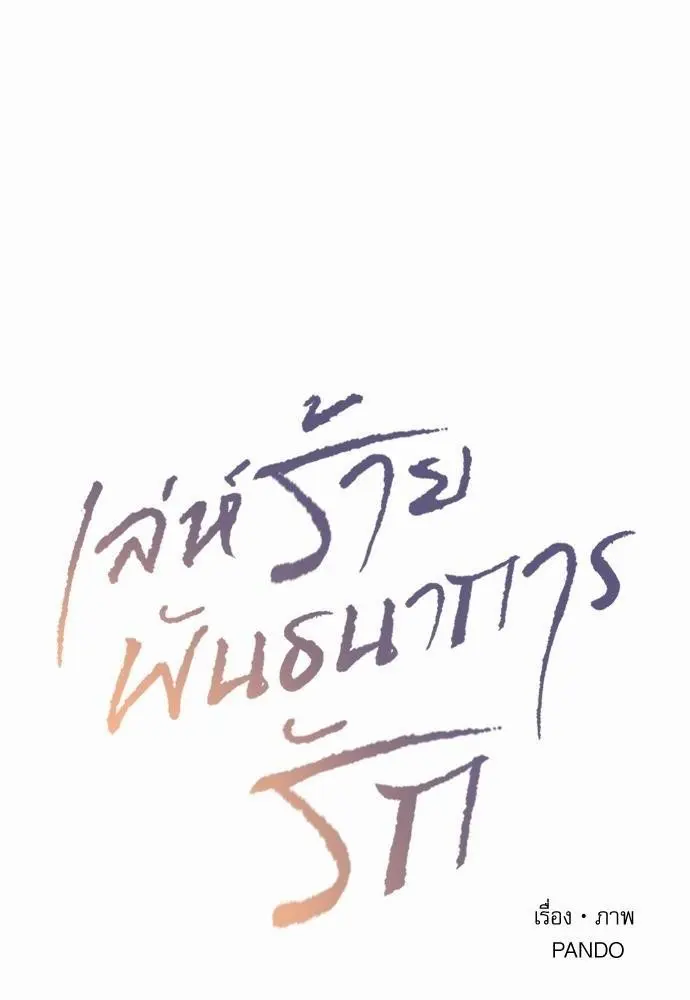 เล่ห์ร้าย
พันธนาการ
รัก
เรื่อง • ภาพ
PANDO